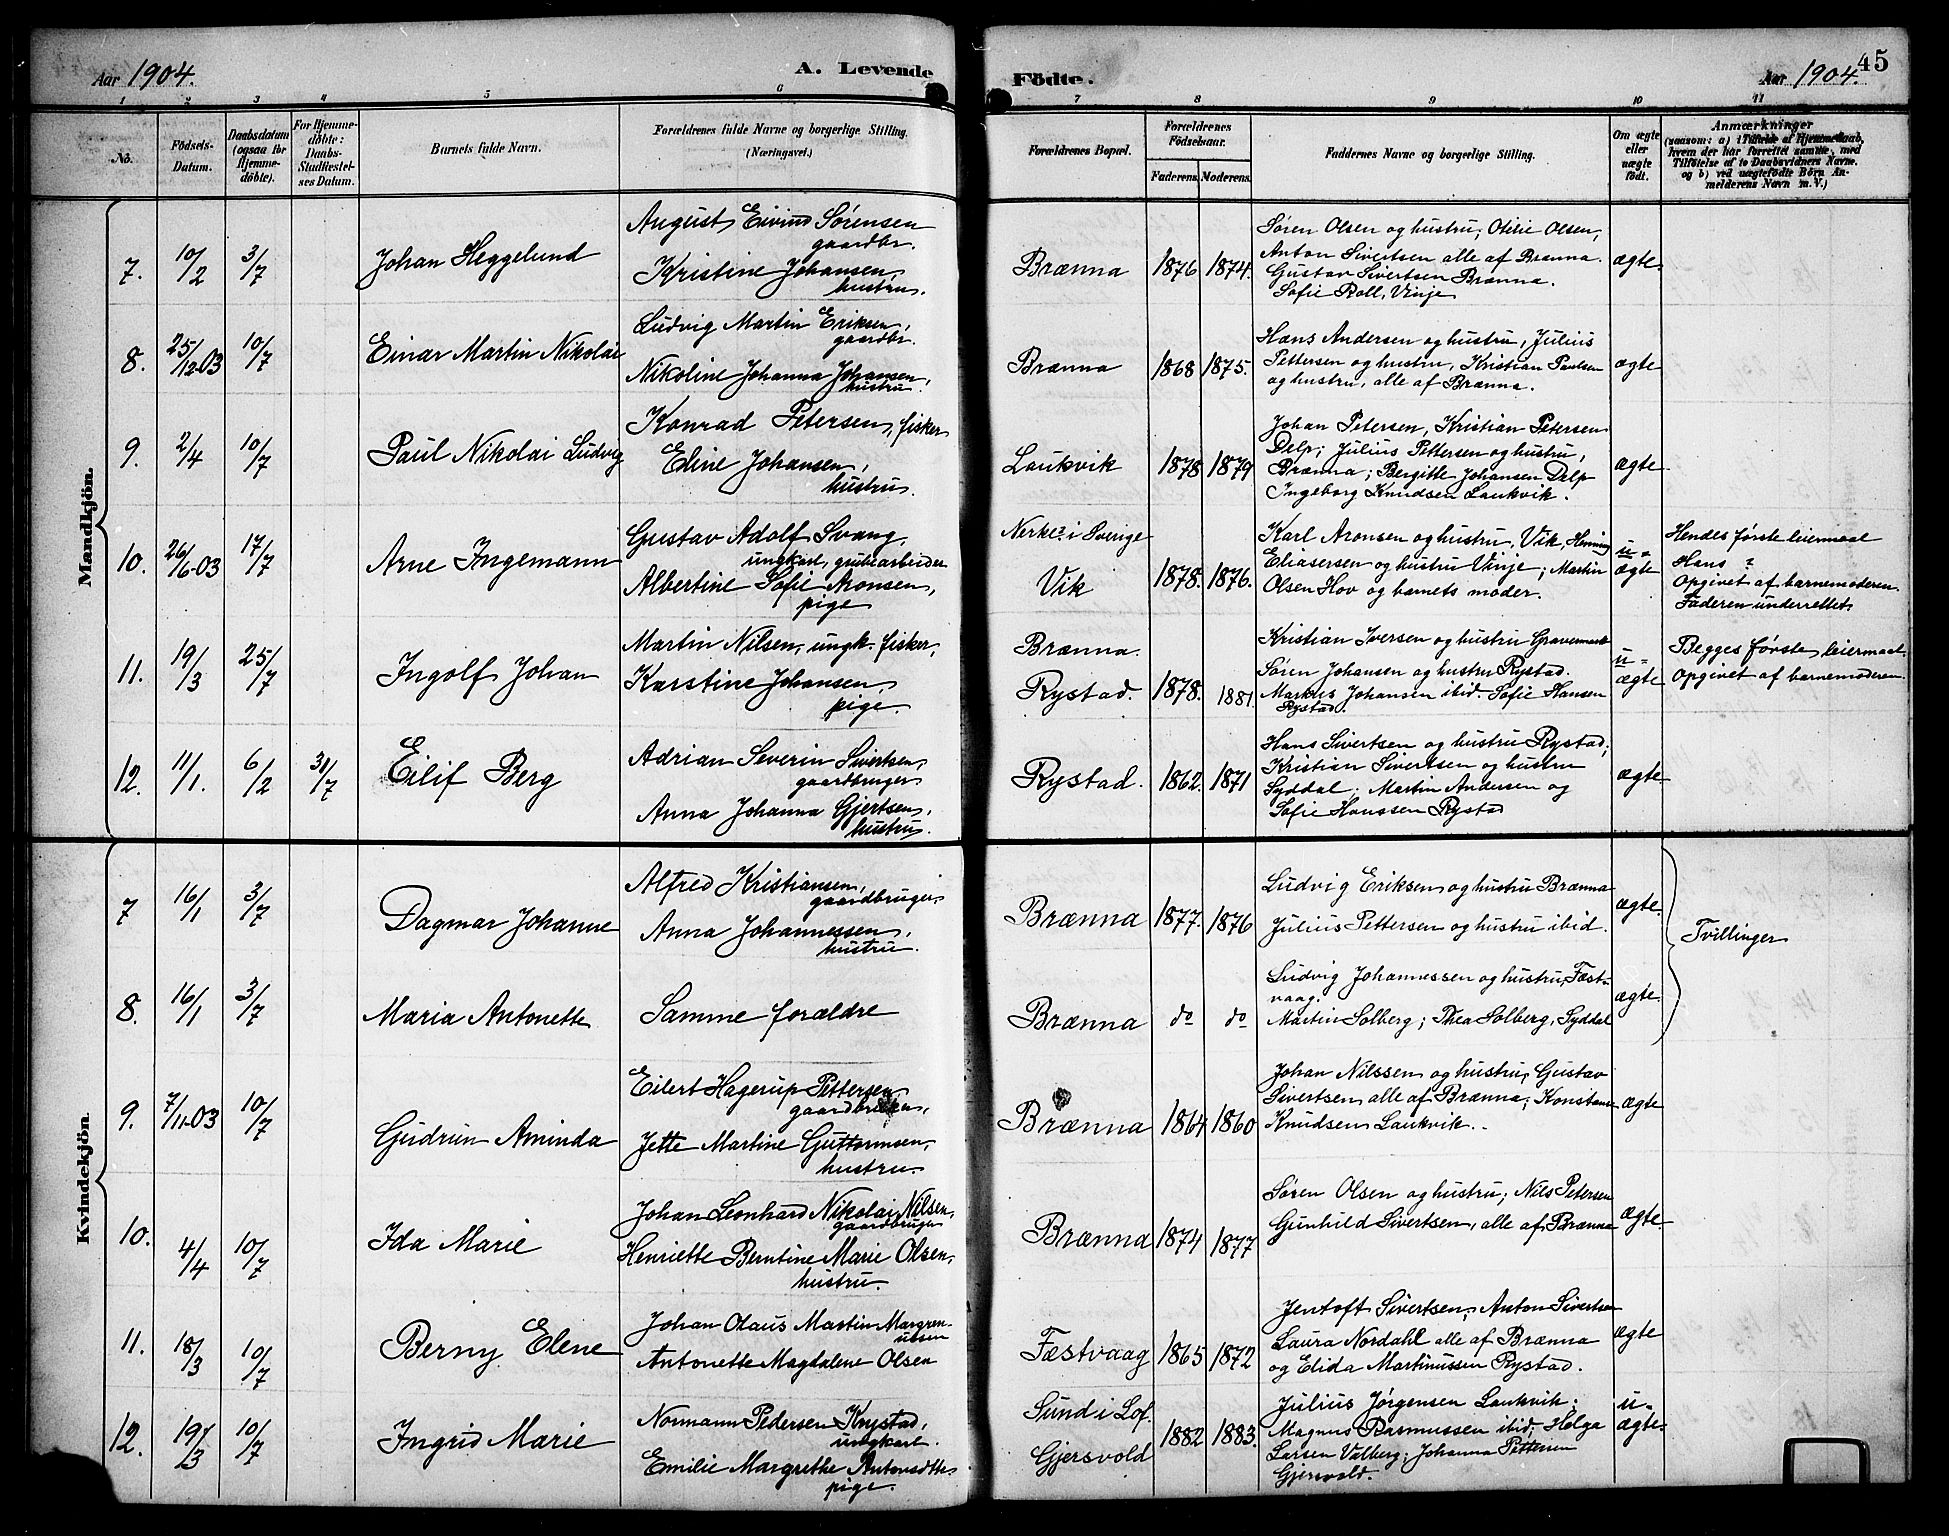 Aar 1904.
A. Levende
Födte.
Aar 1904.
45
1 2 3 4 5 6 7 8 9 10 11
No.
Födsels-
Datum.
Daabsdatum
(ogsaa for
Hjemme-
döbte).
For Hjemme-
döbte:
Daabs-
Stadfæstel-
ses Datum.
Barnets fulde Navn.
Forældrenes fulde Navne og borgerlige Stilling.
(Næringsvei.)
Forældrenes Bopæl.
Forældrenes
Födselsaar.
Faderens. Moderens.
Faddernes Navne og borgerlige Stilling.
Om ægte
eller
uægte
födt.
Anmærkninger
(saasom: a) i Tilfælde af Hjemmedaab,
hvem der har forrettet samme, med
Tilföielse af to Daabsvidners Navne.
og b) ved uægtefödte Börn An-
melderens Navn m. V.)
Mandkjön.
7. 10/2 3/7 Johan Heggelund
August Eivind Sörensen
gaardbr.
Kristine Johansen,
hustru.
Brænna 1876 1874.
Søren Olsen og hustru; Otilie Olsen,
Anton Sivertsen alle af Brænna.
Gustav Sivertsen Brænna.
Sofie Roll, Vinje
ægte
8. 25/12-03 10/7 Einar Martin Nikolai
Ludvig Martin Eriksen,
gaardbr.
Nikoline Johanna Johansen,
hustru.
Brænna 1868 1875.
Hans Andersen og hustru, Julius
Pettersen og hustru, Kristian Paulsen
og hustru, alle af Brænna.
ægte
9. 2/4 10/7 Paul Nikolai Ludvig
Konrad Petersen, fisker
Eline Johansen,
hustru.
Laukvik 1878 1879
Johan Petersen, Kristian Petersen
Delp; Julius Pettersen og hustru,
Brænna; Bergitte Johansen Delp
Ingeborg Knudsen Laukvik.
ægte
10. 26/6-03 17/7 Arne Ingemann
Gustav Adolf Svang,
ungkarl, grubearbeider
Albertine Sofie Aronsen,
pige
Nerke? i Sverige
Vik 1878. 1876.
Karl Aronsen og hustru, Vik, Henning
Eliasersen og hustru Vinje; Martin
Olsen Hov og barnets moder.
u-
ægte
Hendes første leiermaal
Hans ?
Opgivet af barnemoderen.
Faderen underrettet
11. 19/3 25/7 Ingolf Johan
Martin Nilsen, ungk. fisker,
Karstine Johansen,
pige.
Brænna.
Rystad. 1878. 1881.
Kristian Iversen og hustru Gravermark
Søren Johansen og hustru Rystad.
Markus Johansen ibid. Sofie Hansen
Rystad.
u-
ægte
Begges første leiermaal.
Opgivet af barnemoderen.
12. 11/1. 6/2 31/7 Eilif Berg
Adrian Severin Sivertsen
gaardbruger
Anna Johanna Gjertsen,
hustru.
Rystad. 1862. 1871
Hans Sivertsen og hustru Rystad;
Kristian Sivertsen og hustru
Syddal; Martin Andersen og
Sofie Hanssen Rystad
ægte
Kvindekjön
7 16/1 3/7 Dagmar Johanne
Alfred Kristiansen,
gaardbruger
Anna Johannessen,
hustru.
Brænna 1877. 1876
Ludvig Eriksen og hustru Brænna
Julius Pettersen og hustru ibid.
ægte.
Tvillinger
8. 16/1 3/7 Maria Antonette
Samme forældre
Brænna do do
Ludvig Johannessen og hustru, Fæst-
vaag.
Martin Solberg; Thea Solberg, Syddal
ægte.
9. 7/11-03 10/7 Gudrun Aminda
Eilert Hagerup Pettersen
gaardbruker,
Jette Martine Guttormsen,
hustru.
Brænna 1864 1860
Johan Nilssen og hustru, Gustav
Sivertsen alle af Brænna; Konstanse
Knudsen Laukvik.
ægte
10. 4/4 10/7 Ida Marie
Johan Leonhard Nikolai Nilsen,
gaardbruger
Henriette Berntine Marie Olsen,
hustru.
Brænna 1874 1877
Søren Olsen og hustru; Nils Petersen
Gunhild Sivertsen, alle af Brænna
ægte
11. 18/3 10/7 Berny Elene
Johan Olaus Martin Margren-
ussen
Antonette Magdalene Olsen
Fæstvaag 1865 1872
Jentoft Sivertsen; Anton Sivertsen
Laura Nordahl alle af Brænna
og Elida Martinussen Rystad.
ægte
12. 19/3 10/7 Ingrid Marie
Normann Pedersen Krystad,
ungkarl.
Emilie Margrethe Antonsdtte
pige.
Sund i Lof.
Gjersvold 1882 1883.
Julius Jørgensen Laukvik;
Magnus Rasmussen ibid; Helga
Larsen Valberg; Johanna Pettersen
Gjersvold.
u-
ægte